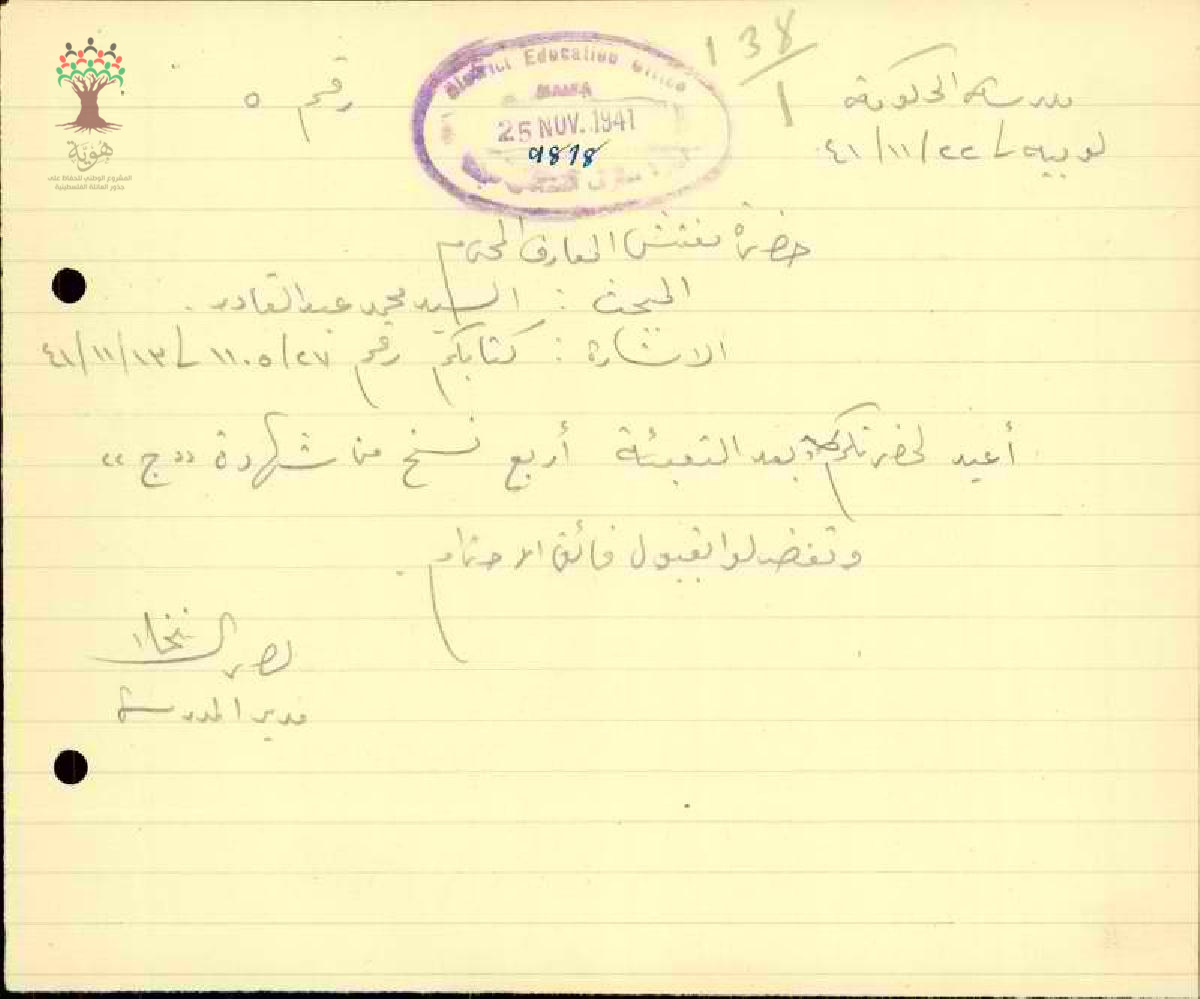 138
1
مدرسة الحكومة
لوبيه في ٢٢/١١/٤١
رقم ٥
District Education Office
HAIFA
25 NOV. 1941
9878
هوية
المشروع الوطني للحفاظ على
جذور العائلة الفلسطينية
حضرة مفتش المعارف المحترم
المبحث : السيد محمد عبد القادر .
الاشارة : كتابكم رقم ١١٠٥/٢٧ في ١٣/١١/٤١
أعيد لحضرتكم بعد التعبئة أربع نسخ من شهادة "ج"
وتفضلوا بقبول فائق الاحترام .
نصر
مدير المدرسة